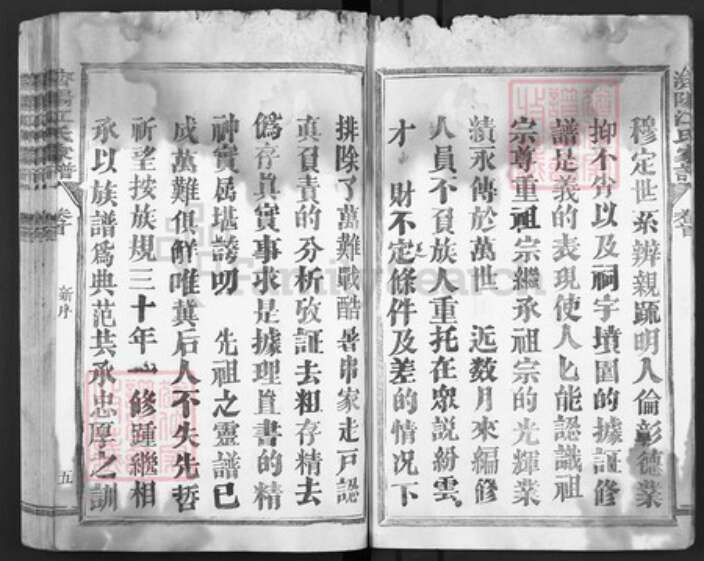 穆定世系辨親疏明人倫彰德業
抑不分以及祠宇墳圖的據証修
譜是義的表現使人匕能認識祖
宗尊重祖宗繼承祖宗的光輝業
績永傳於萬世 近数月來編修
人員不負族人重托在眾説紛雲
才 財不定條件及差的情况下
排除了萬難戰酷暑串家走户認
真負責的分析攷証去粗存精去
偽存眞實事求是據理直書的精
神實属堪謗叨 先祖之靈譜已
成萬難俱鮮唯冀后人不失先哲
祈望按族規三十年一修踵繼相
承以族譜為典范共承忠厚之訓
江氏家譜
卷首
新序
五